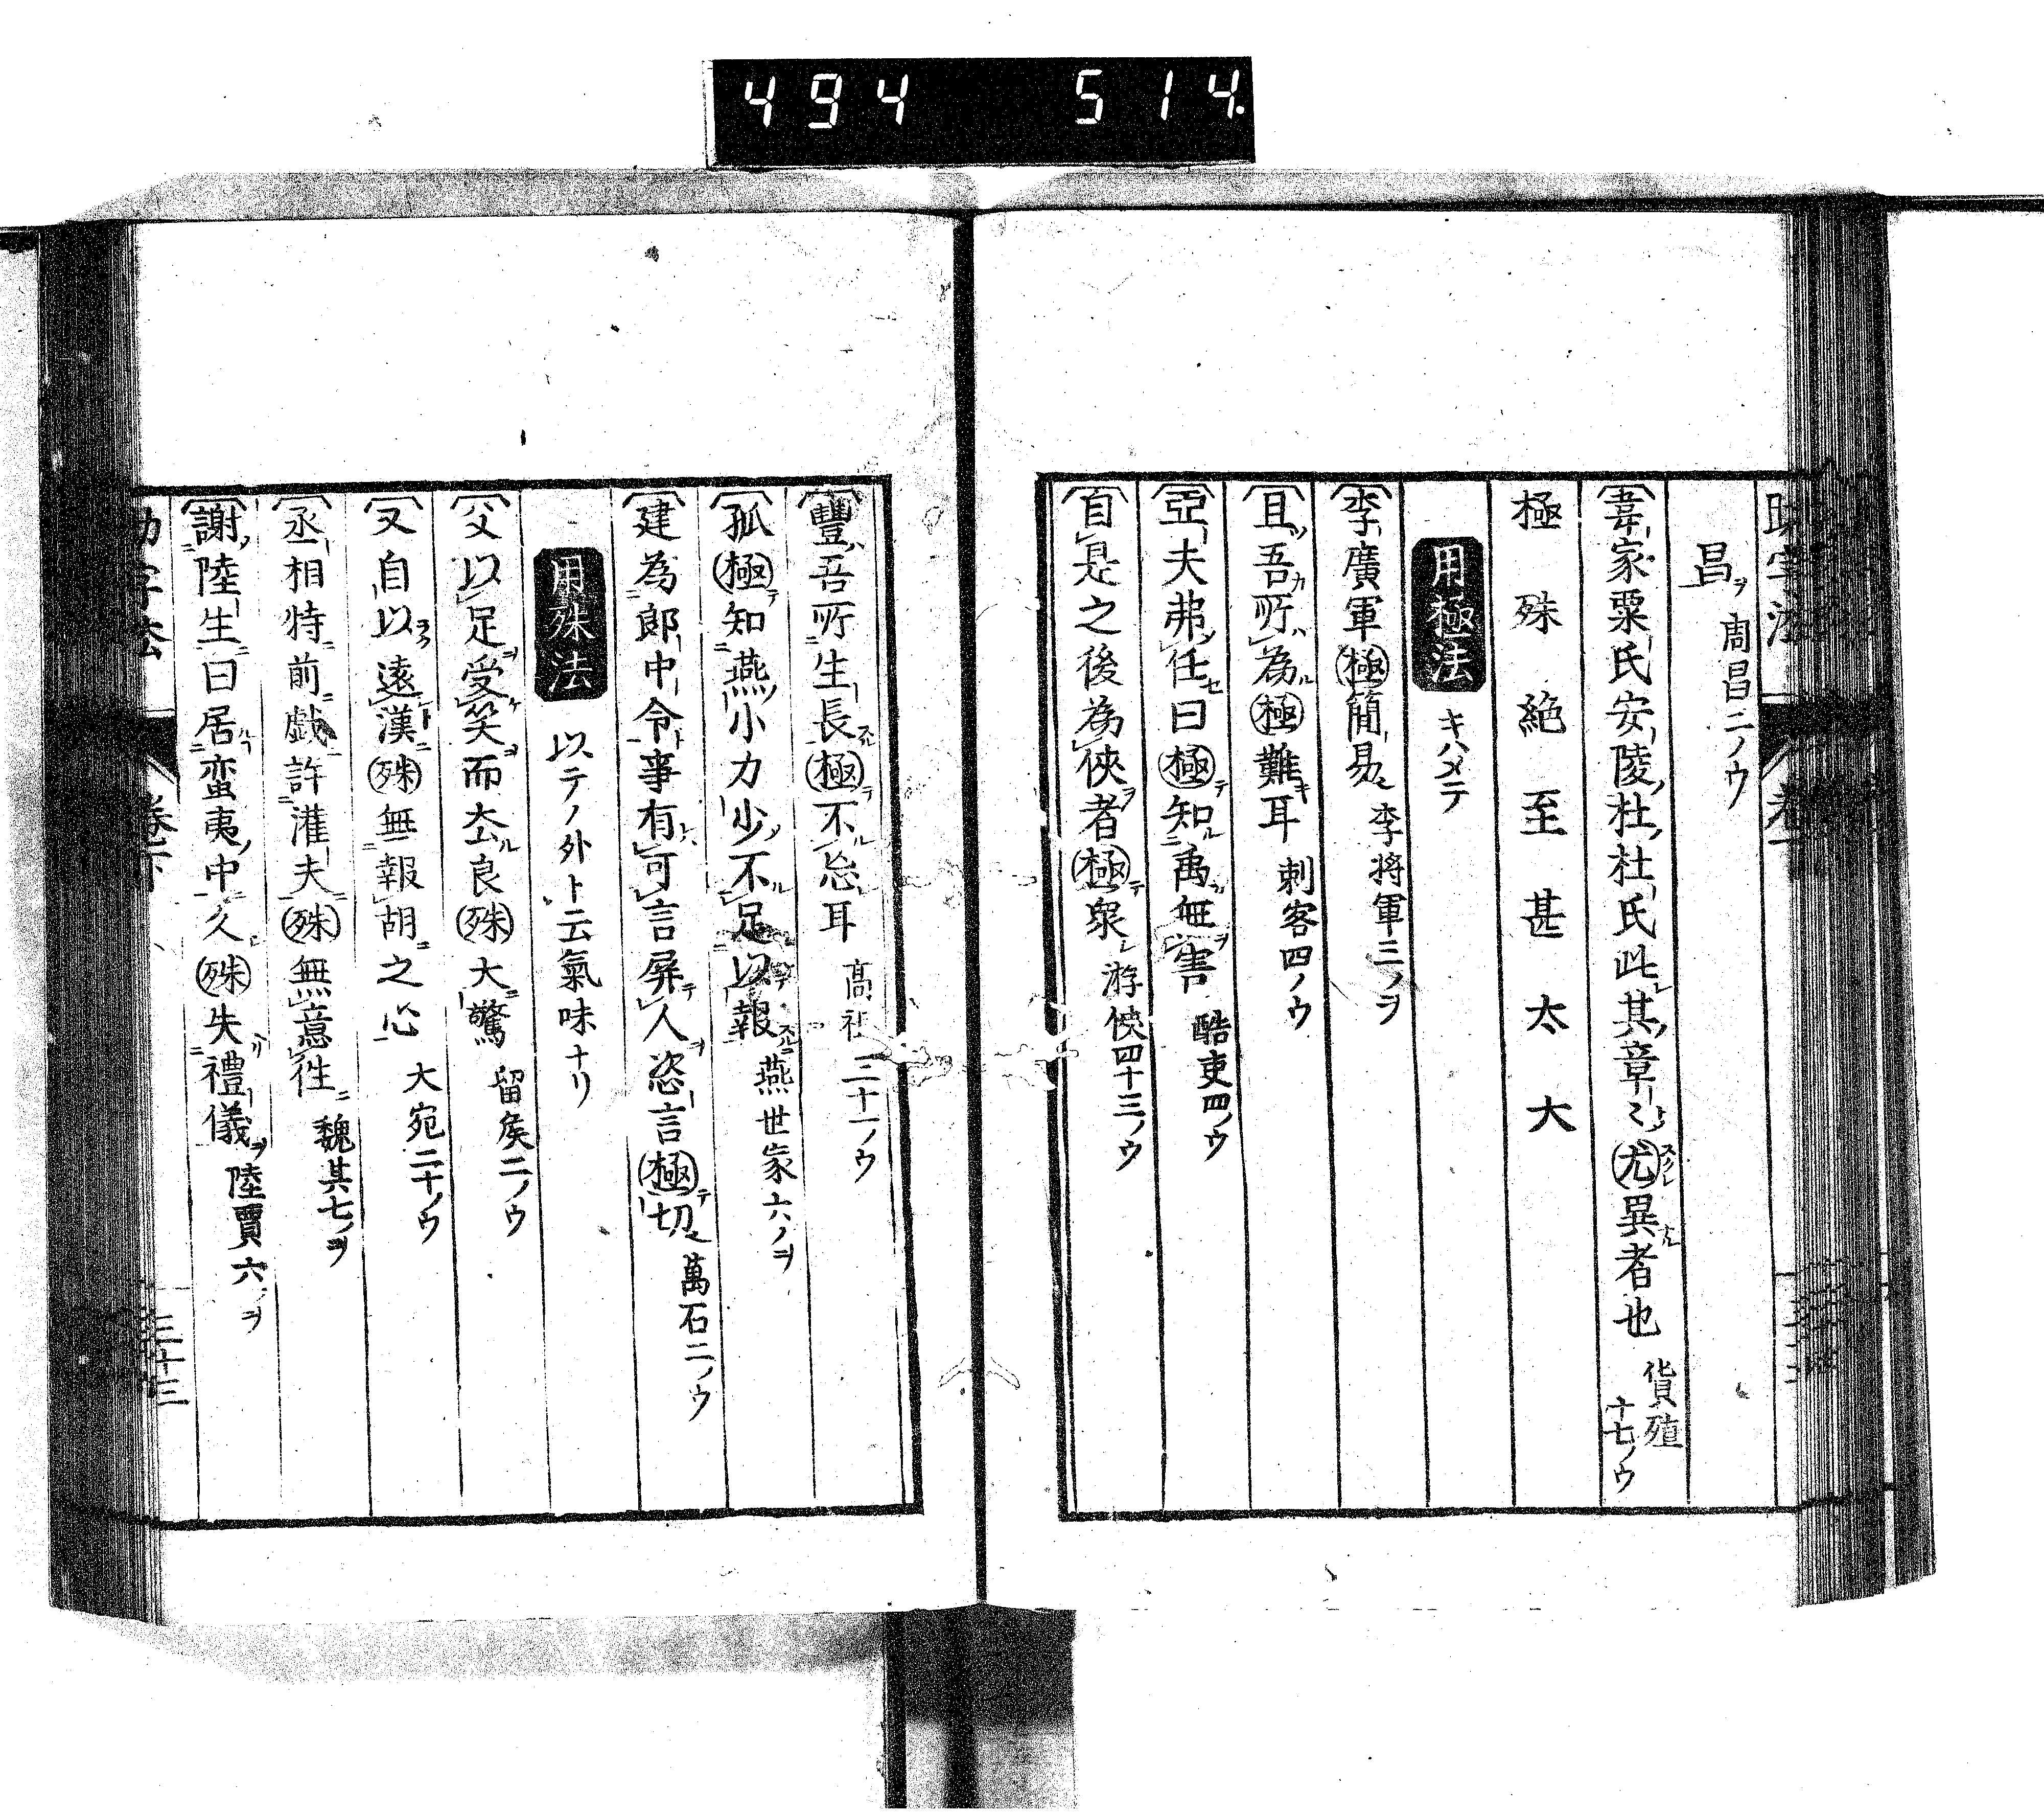 494 514.
昌ヲ 周昌二ノウ
韋家栗氏安陵杜杜氏此其章〻尤異者也 貨殖十七ノウ
極殊絶至甚太大
用極法 キハメテ
李廣軍極簡易 李將軍三ノヲ
且吾所為極難耳 刺客四ノウ
亞夫弗任曰極知禹無害 酷吏四ノウ
自是之後為俠者極衆 游俠四十三ノウ
豐吾所生長極不忘耳 髙祖二十一ノウ
孤極知燕小力少不足以報 燕世家六ノヲ
建為郎中令事有可言屏人恣言極切 萬石二ノウ
用殊法 以テノ外ト云氣味ナリ
父以足受笑而去良殊大驚 留矦二ノウ
又自以遠漢殊無報胡之心 大宛二十ノウ
丞相特前戯許灌夫殊無意往 魏其七ノヲ
謝陸生曰居蛮夷中久殊失禮儀 陸賈六ノヲ
助字法 卷下 三十三